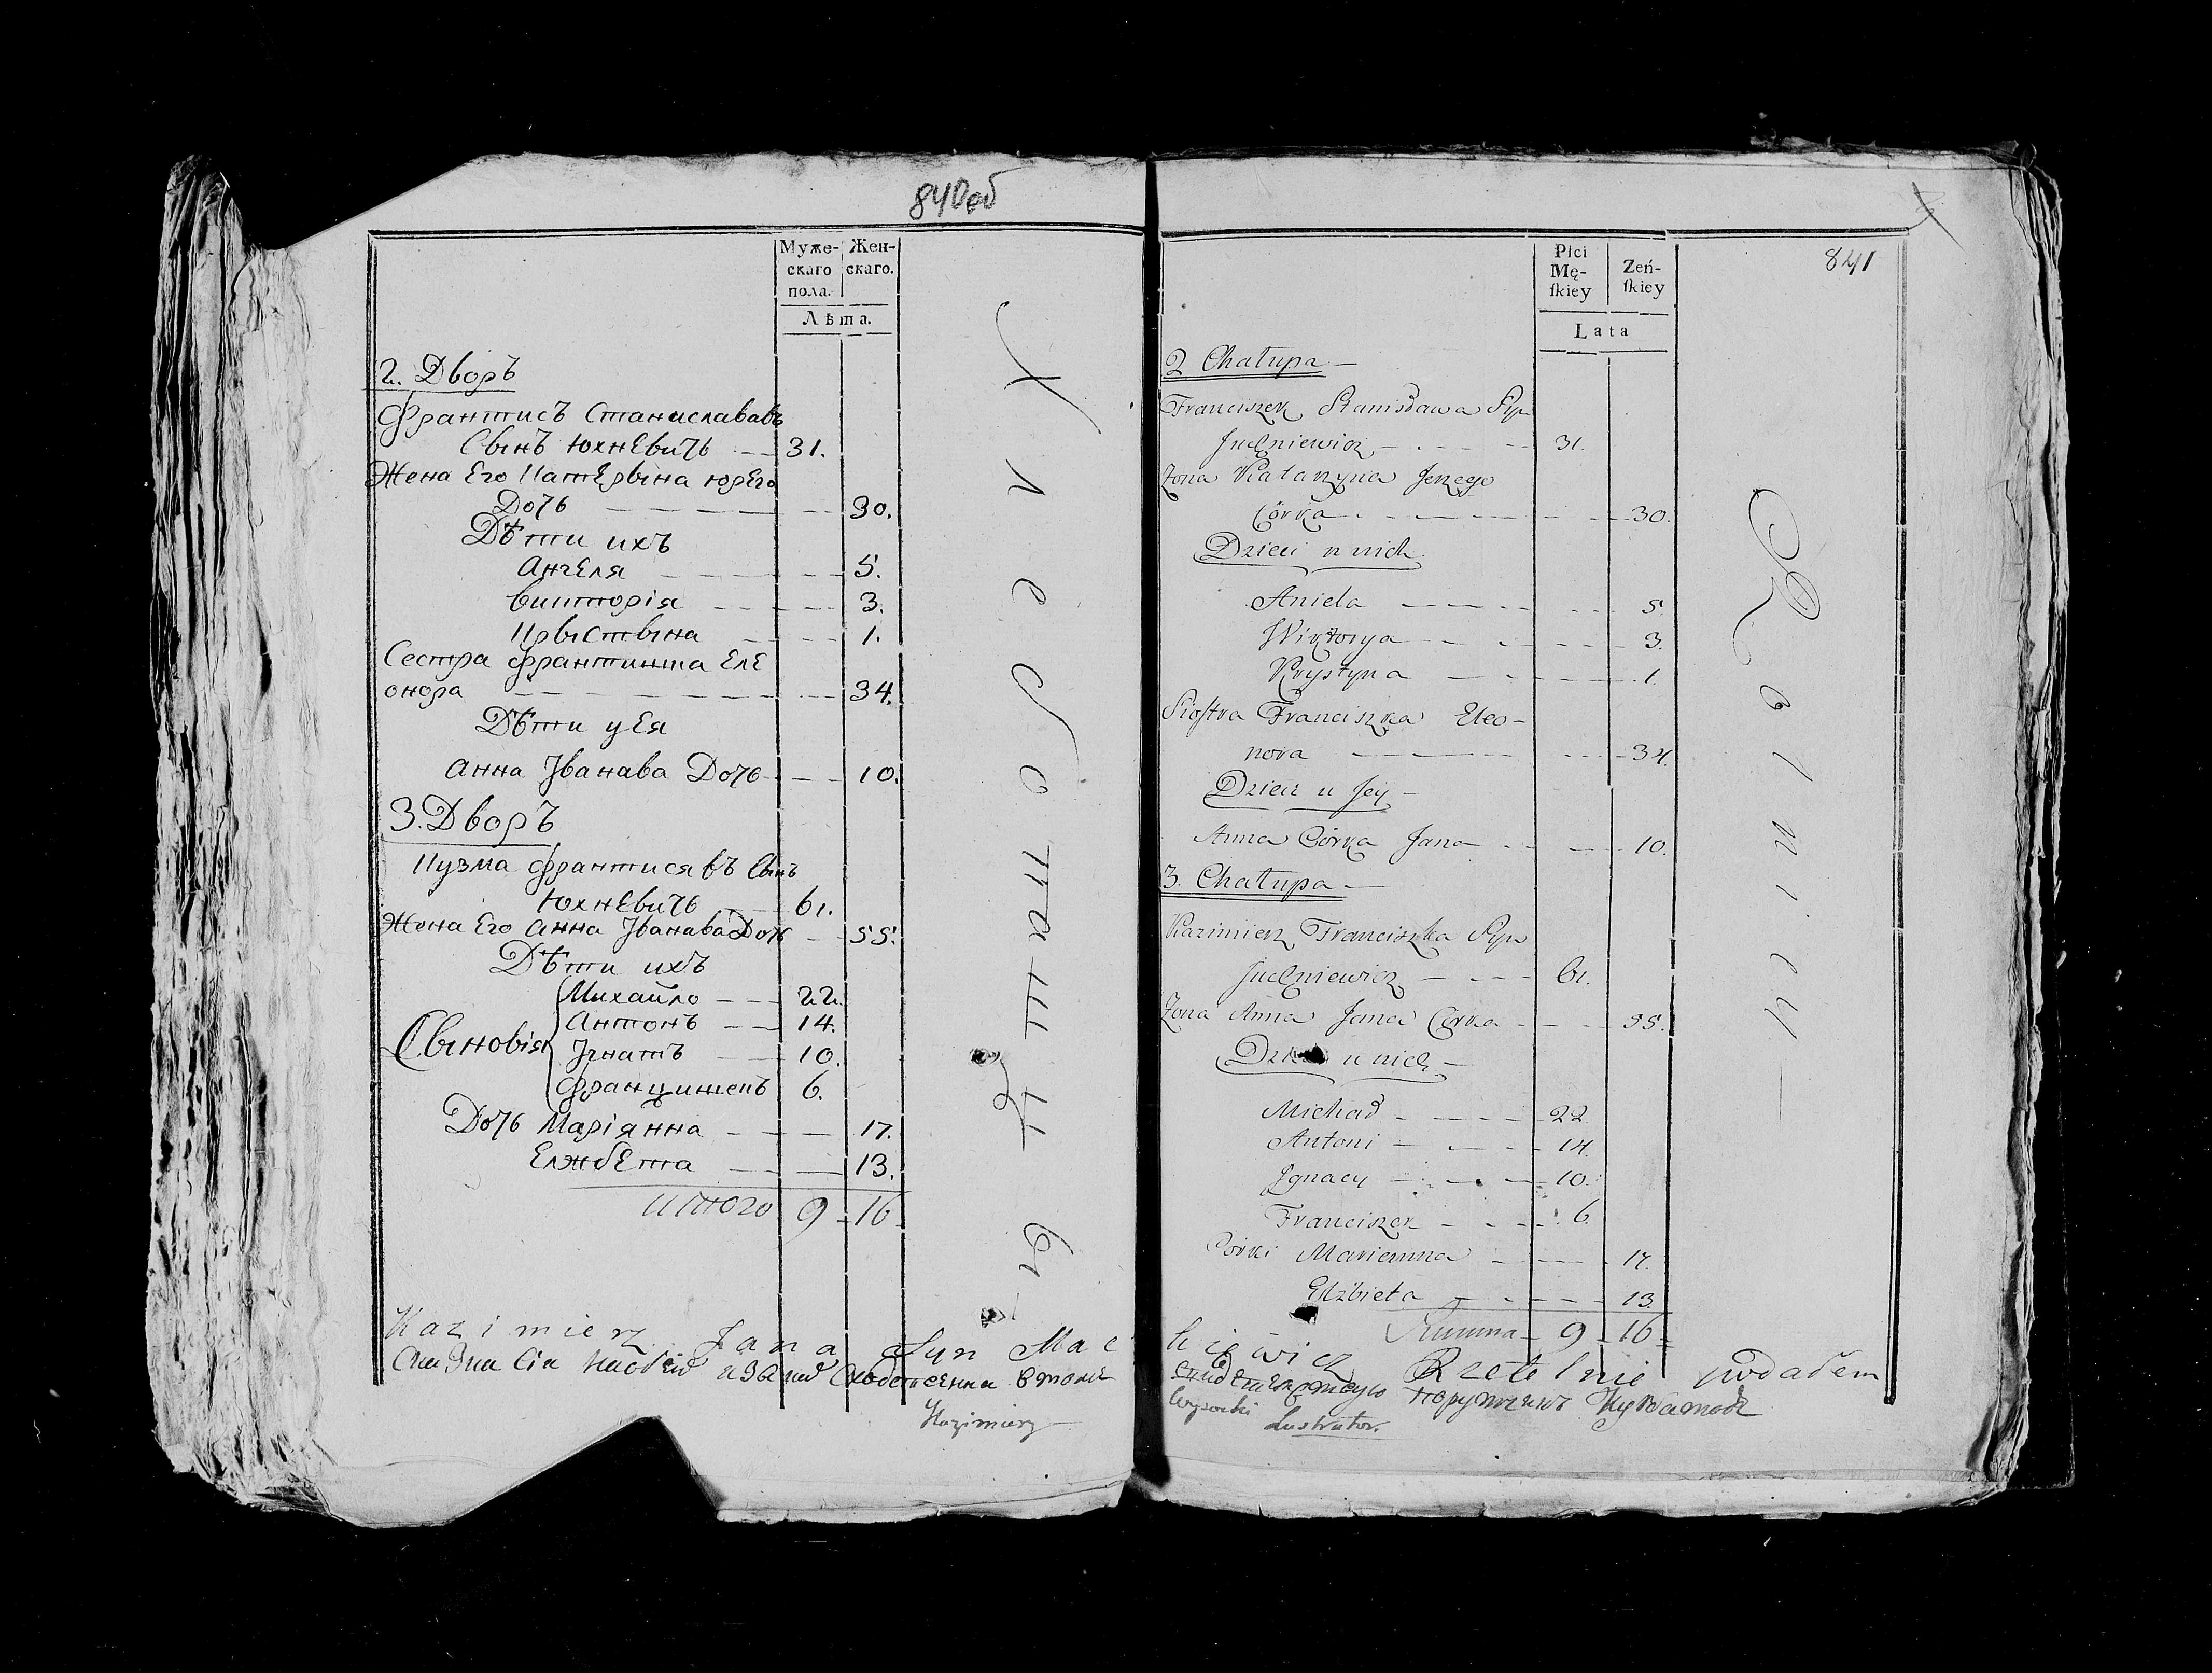 840об
Муже-
скаго
пола.
Жен-
скаго.
Лѣта.
2. Дворъ
Франтисъ Станислававъ
Сынъ Юхневичь 31.
Жена Его Катерына юрего
Дочь 30.
Дѣти ихъ
Ангеля 5.
Викторія 3.
Крыстына 1.
Сестра франтишка Еле
онора 34.
Дѣти у Ея
Анна Іванава Дочь 10.
3. Дворъ
Кузма франтисявъ Сынъ
Юхневичь 61.
Жена Его Анна Іванава Дочь 55.
Дѣти ихъ
Сыновія
Михайло 22.
Антонъ 14.
Ігнатъ 10.
Францишекъ 6.
Дочь Маріянна 17.
Елжбета 13.
Итого 9 16
Хлебопашцы
Kazimierz Jana Syn Mac
Kazimierz
841
Płci
Mę-
ſkiey
Zeń-
ſkiey
Lata
2 Chałupa
Franciszek Stanisława Syn
Juchniewicz 31.
Żona Katarzyna Jerzego
Córka 30.
Dzieci u nich
Aniela 5.
Wiktorya 3.
Krystyna 1.
Siostra Franciszka Eleo-
nora 34.
Dzieci u Jey
Anna Córka Jana 10.
3. Chałupa
Kazimierz Franciszka Syn
Juchniewicz 61.
Żona Anna Jana Córka 55.
Dzieci u nich
Michał 22
Antoni 14.
Ignacy 10.
Franciszek 6
Córki Marianna 17.
Elżbieta 13.
Summa 9 16
Rolnicy
kiewicz Rzetelnie podałem
Wysocki Lustrator.